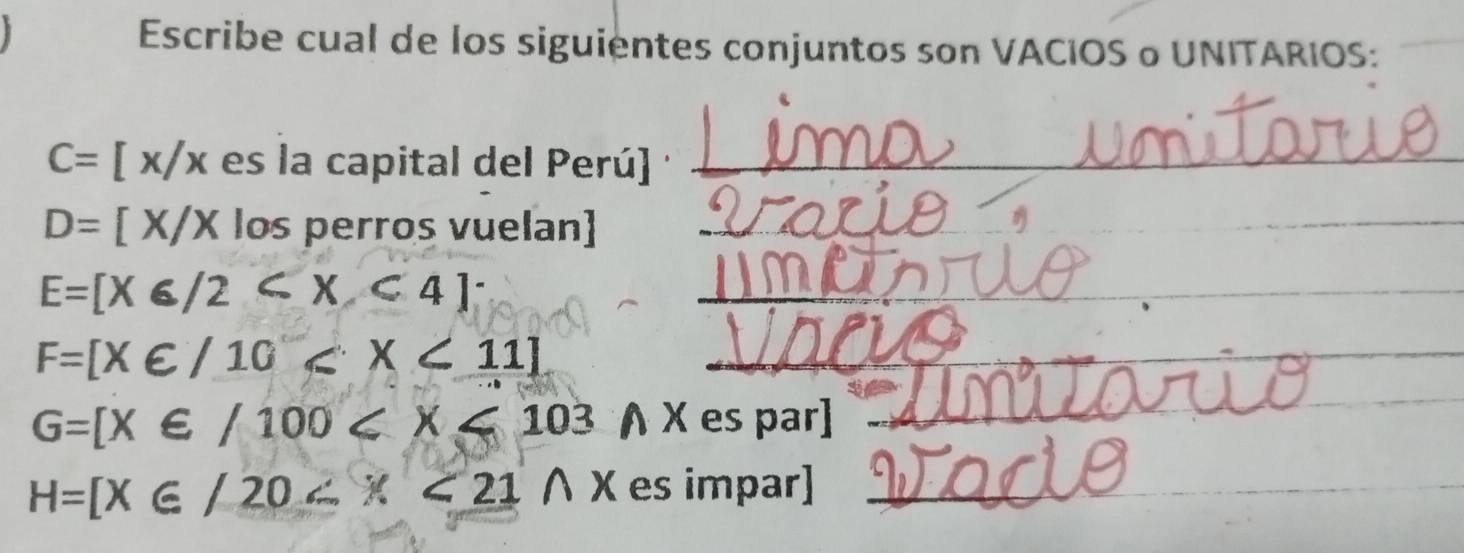 ) Escribe cual de los siguientes conjuntos son VACIOS o UNITARIOS:
C= [ x/x es la capital del Perú] Lima unitario
D= [ X/X los perros vuelan] vacio
E=[X Є/2 < X < 4 ] unitario
F=[X Є / 10 < X < 11] Vacio
G=[X Є / 100 < X < 103 ∧ X es par] unitario
H=[X Є / 20 < X < 21 ∧ X es impar] vacio